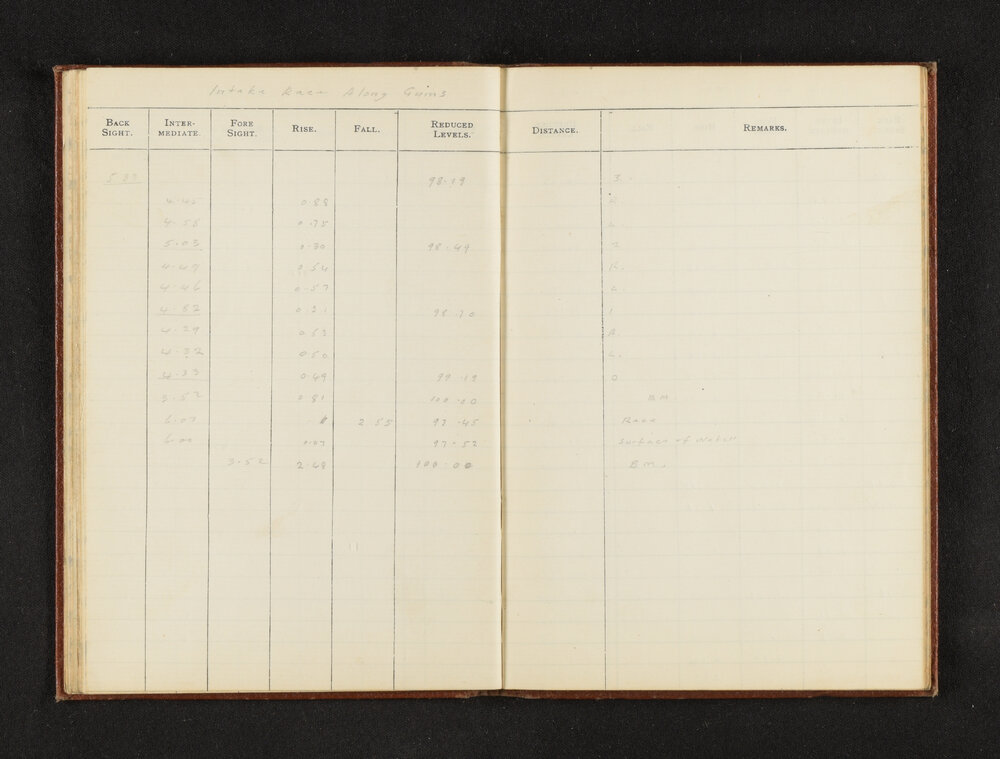 Intake Race Along Gums
BACK SIGHT. INTER-MEDIATE. FORE SIGHT. RISE. FALL. REDUCED LEVELS. DISTANCE. REMARKS.
5.33 98.19 3.
4.45 0.88
4.58 0.75 L.
5.03 0.30 98.49 2
4.49 0.54 R.
4.46 0.57 L.
4.82 0.21 98.70 1
4.29 0.53 R.
4.32 0.50 L.
4.33 0.49 99.19 0
3.52 0.81 100.00 BM
6.07 2.55 97.45 Race
6.00 0.07 97.52 Surface of Water
3.52 2.48 100.00 BM.